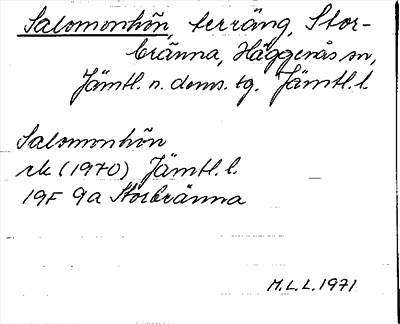 Salomonhön, terräng, Stor-
bränna, Häggenås sn,
Jämtl. n. doms. tg. Jämtl. l.
Salomonhön
rk (1970) Jämtl. l.
19F 9a Storbränna
M.L.L. 1971